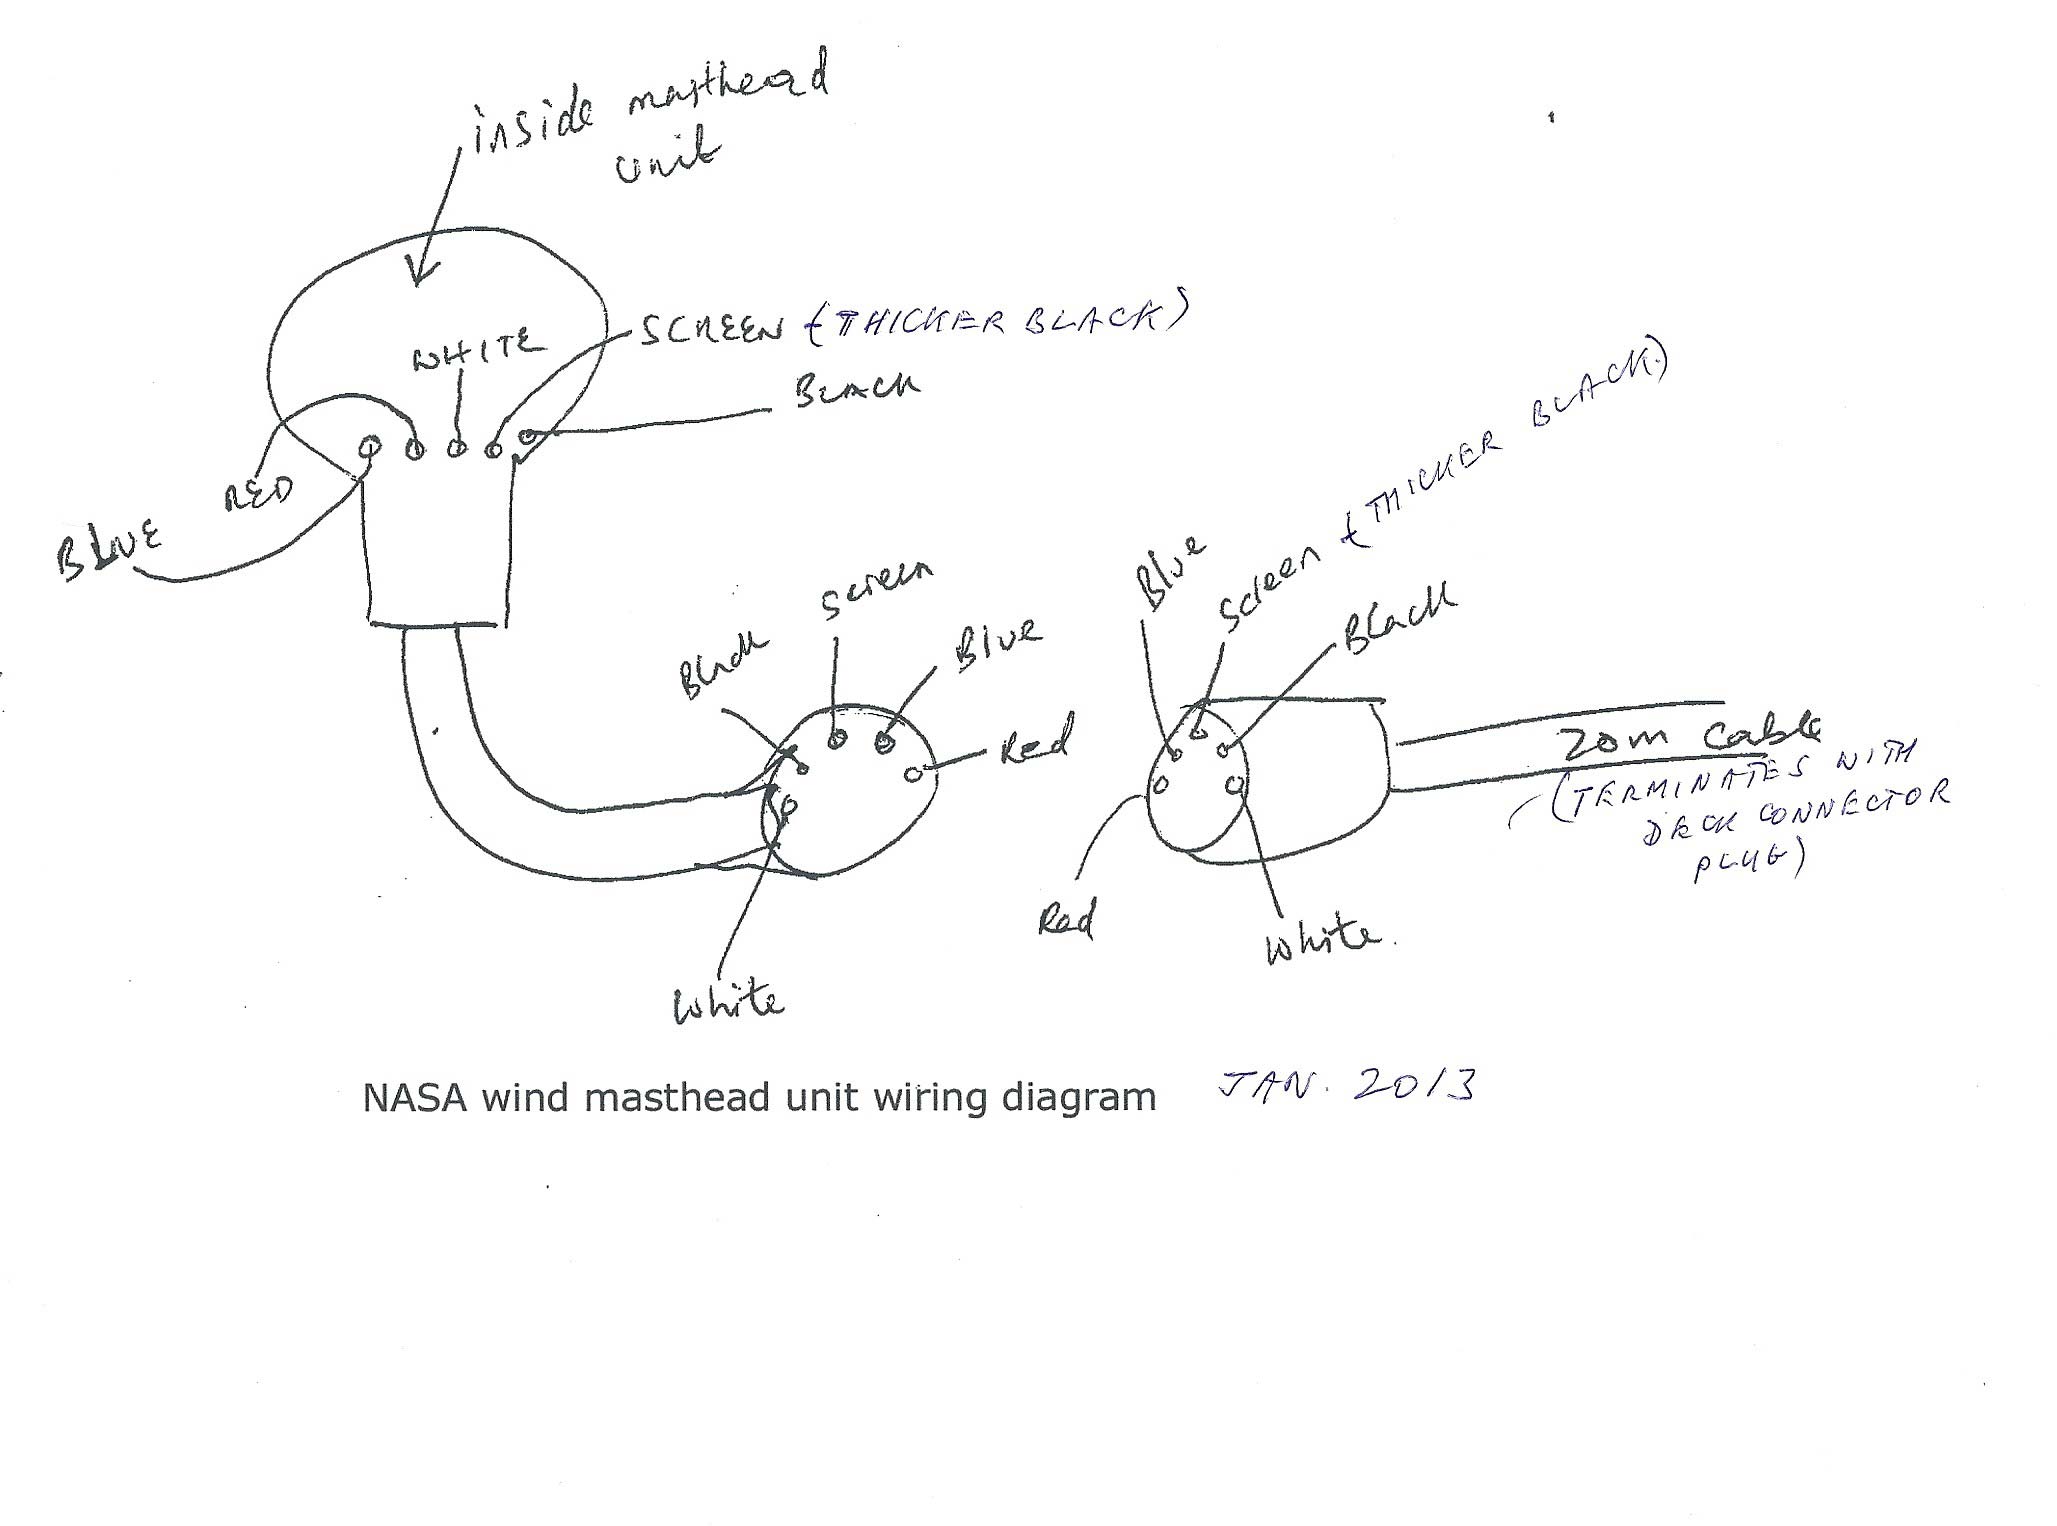 inside masthead
unit
SCREEN (THICKER BLACK)
WHITE
BLACK
RED
BLUE
Black
Screen
Blue
Red
White
Blue
Screen (THICKER BLACK)
Black
Red
White.
20m Cable
(TERMINATES WITH
DECK CONNECTOR
PLUG)
NASA wind masthead unit wiring diagram JAN. 2013